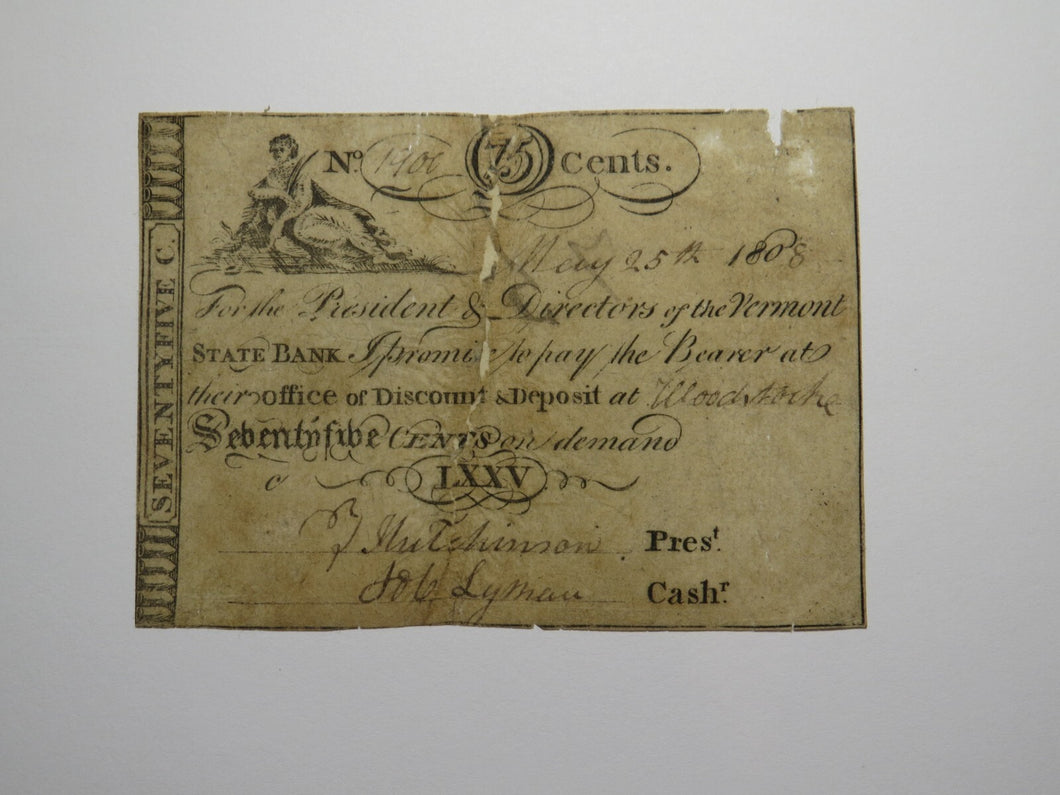 SEVENTYFIVE C.
No. 1900 75 Cents.
May 25th 1808
For the President & Directors of the Vermont
STATE BANK I promise to pay the Bearer at
their office of Discount & Deposit at Woodstock
Seventyfive CENTS on demand
C
LXXV
Hutchinson Prest.
Job Lyman Cashr.